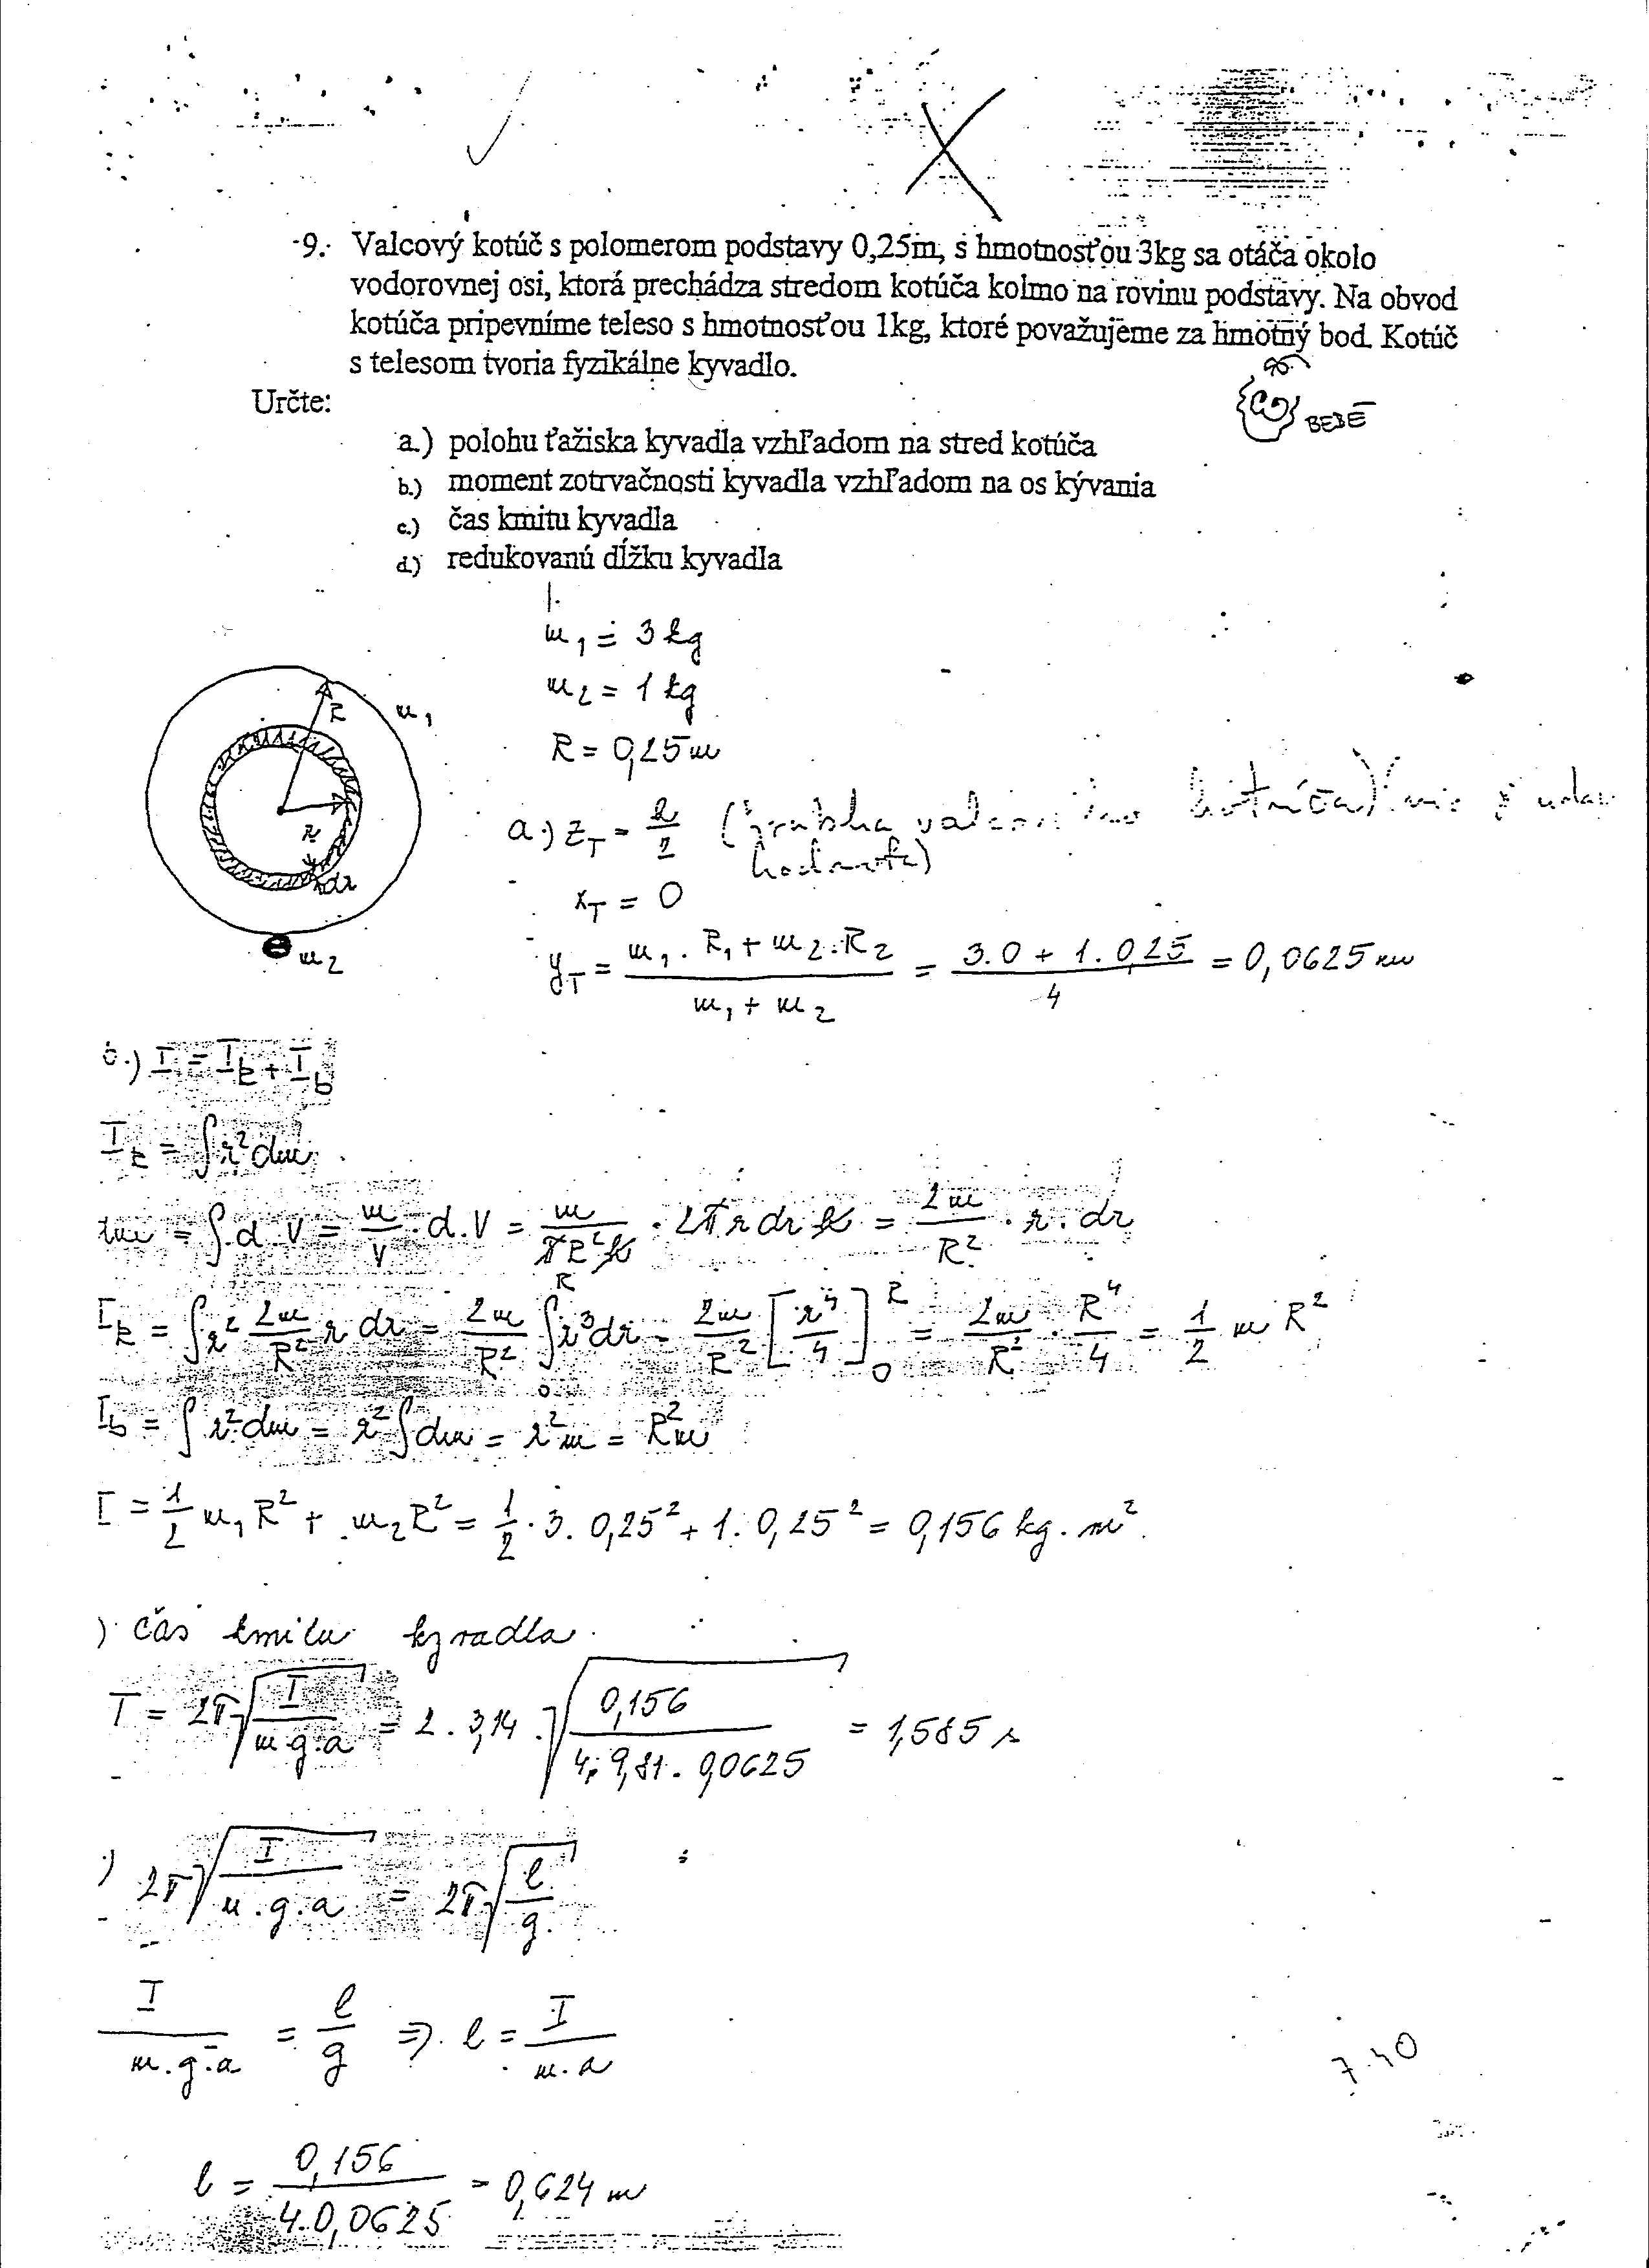 9. Valcový kotúč s polomerom podstavy 0,25m, s hmotnosťou 3kg sa otáča okolo
vodorovnej osi, ktorá prechádza stredom kotúča kolmo na rovinu podstavy. Na obvod
kotúča pripevníme teleso s hmotnosťou 1kg, ktoré považujeme za hmotný bod. Kotúč
s telesom tvoria fyzikálne kyvadlo.
Určte:
BEBÉ
a.) polohu ťažiska kyvadla vzhľadom na stred kotúča
b.) moment zotrvačnosti kyvadla vzhľadom na os kývania
c.) čas kmitu kyvadla
d.) redukovanú dĺžku kyvadla
m₁ = 3 kg
m₂ = 1 kg
R = 0,25 m
R m₁
r
dr
m₂
a.) z_T = h/2 (hrúbka valcového kotúča)
hodnota)
x_T = 0
y_T = (m₁ . R₁ + m₂ . R₂)/(m₁ + m₂) = (3.0 + 1.0,25)/4 = 0,0625 m
b.) I = I_k + I_b
I_k = ∫r²dm
dm = ∫.d.V = m/V . d.V = m/(πR²h) . 2πr dr h = 2m/R² . r . dr
I_k = ∫r² 2m/R² r dr = 2m/R² ∫₀ᴿ r³dr = 2m/R² [r⁴/4]₀ᴿ = 2m/R² . R⁴/4 = 1/2 m R²
I_b = ∫r²dm = r²∫dm = r²m = R²m
I = 1/2 m₁R² + m₂R² = 1/2 . 3 . 0,25² + 1 . 0,25² = 0,156 kg . m²
) čas kmitu kyvadla
T = 2π√(I/(m.g.a)) = 2 . 3,14 . √(0,156/(4 . 9,81 . 0,0625)) = 1,585 s
) 2π√(I/(m.g.a)) = 2π√(l/g)
I/(m.g.a) = l/g ⇒ l = I/(m.a)
7.40
l = 0,156/(4.0,0625) = 0,624 m